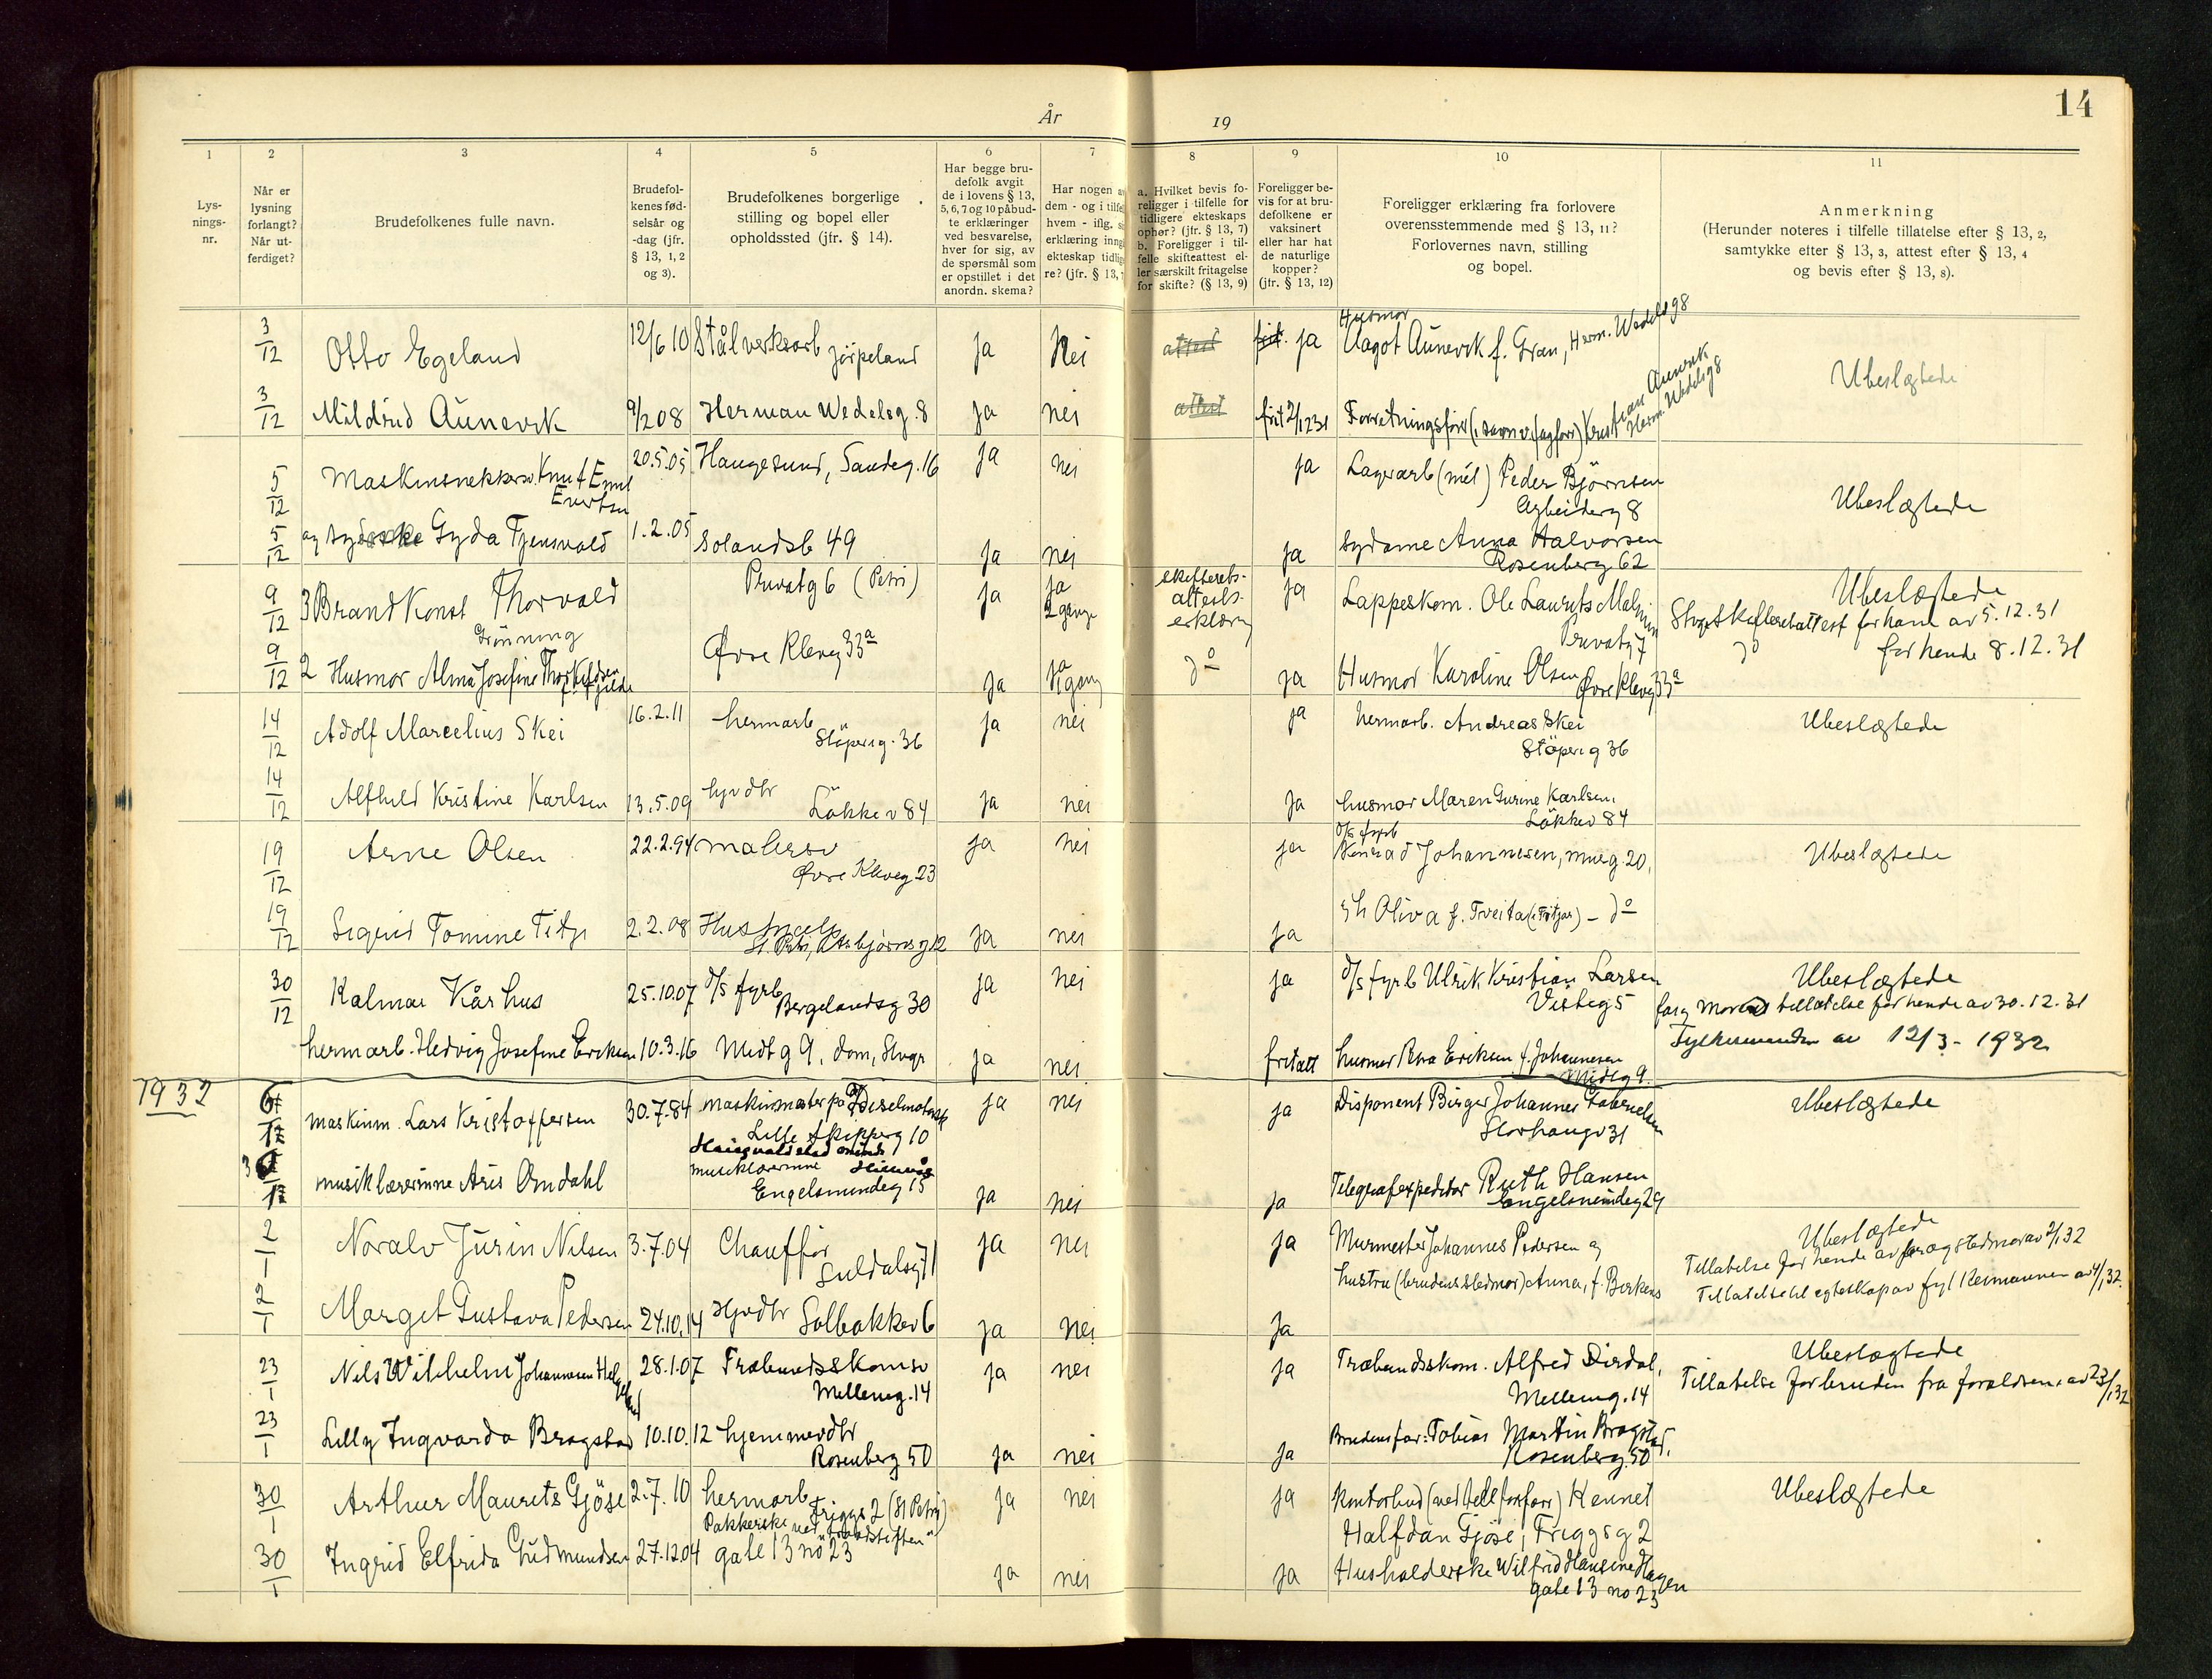 År 19
14
1 2 3 4 5 6 7 8 9 10 11
Lys-
nings-
nr.
Når er
lysning
forlangt?
Når ut-
ferdiget?
Brudefolkenes fulle navn.
Brudefol-
kenes fød-
selsår og
-dag (jfr.
§ 13, 1, 2
og 3).
Brudefolkenes borgerlige
stilling og bopel eller
opholdssted (jfr. § 14).
Har begge bru-
defolk avgit
de i lovens § 13,
5, 6, 7 og 10 påbud-
te erklæringer
ved besvarelse,
hver for sig, av
de spørsmål som
er opstillet i det
anordn. skema?
Har nogen a
dem - og i tilfe
hvem - iflg. s
erklæring inng
ekteskap tidlig
re? (jfr. § 13,
a. Hvilket bevis fo-
religger i tilfelle for
tidligere ekteskaps
ophør? (jfr. § 13, 7)
b. Foreligger i til-
felle skifteattest el-
ler særskilt fritagelse
for skifte? (§ 13, 9)
Foreligger be-
vis for at bru-
defolkene er
vaksinert
eller har hat
de naturlige
kopper?
(jfr. § 13, 12)
Foreligger erklæring fra forlovere
overensstemmende med § 13, 11?
Forlovernes navn, stilling
og bopel.
Anmerkning
(Herunder noteres i tilfelle tillatelse efter § 13, 2,
samtykke efter § 13, 3, attest efter § 13, 4
og bevis efter § 13, 8).
3/12 Otto Egeland 12/6 10 Stålverksarb Jörpeland ja Nei attest frit. ja Husmor
Aagot Aunevik f. Gran, Herm. Wedelsg 8
Ubeslægtede
3/12 Mildrid Aunevik 9/2 08 Herman Wedelsg. 8 ja nei attest frit 2/12 31 Forretningsfører Kristian Aunevik
Herm. Wedelsg 8
5/12 Maskinsnekkersv. Knut Emil
Evertsen 20.5.05 Haugesund, Sandeg. 16 ja nei ja Lagerarb (møl) Peder Björnsen
Arbeiderg 8
Ubeslægtede
5/12 og syerske Gyda Tjensvold 1.2.05 Solandsb 49 ja nei ja Sydame Anna Halvorsen
Rosenberg 62
9/12 3 Brandkonst Thorvald
Grönning Privatg 6 (Petri) ja ja
2 gange skifterets-
attests-
erklæring ja Lappeskom. Ole Laurits Malmin
Privatg 7
Ubeslægtede
Stvgr Skifteretattest for ham av 5.12.31
do for hende 8.12.31
9/12 2 Husmor Alma Josefine Thorkildsen
f. Gilde Øvre Kleivg 33a ja ja
1 gang do ja Husmor Karoline Olsen Øvre Kleivg 33a
14/12 Adolf Marcelius Skei 16.2.11 hermarb
Stöperig. 36 ja nei ja hermarb. Andreas Skei
Stöperig 36
Ubeslægtede
14/12 Alfhild Kristine Karlsen 13.5.09 hjvdtr
Lökkev 84 ja nei ja husmor Maren Gurine Karlsen,
Lökkev 84
19/12 Arne Olsen 22.2.94 malersv
Øvre Kleivg 23 ja nei ja d/s fyrb
Konrad Johannesen, murg. 20,
Ubeslægtede
19/12 Sigrid Tomine Titz 2.2.08 Hushjælp
St. Petri, Asbjörnsg 12 ja nei ja gh Oliva f. Tveita (i Fitjar) - do
30/12 Kalmar Kårhus 25.10.07 d/s fyrb
Bergelandsg 30 ja nei ja d/s fyrb Ulrik Kristian Larsen
Vesteg 5
Ubeslægtede
far og mor tillatelse for hende av 30.12.31
Fylkesmanden av 12/3 - 1932
hermarb. Hedvig Josefine Eriksen 10.3.16 Midtg 9, dom, Stvgr ja nei fritatt husmor Elva Eriksen f. Johannesen
Midtg 9.
1932
maskinm. Lars Kristoffersen 30.7.84 maskinmester på Dieselmotorsk
Lille Skipperg 10 ja nei ja Disponent Birger Johannes Gabrielsen
Storhaugv 31
Ubeslægtede
musiklærerinne Aris Omdahl musiklærerinne
Engelsmindeg 15 ja nei ja Telegrafexpeditør Ruth Hansen
Engelsmindeg 29
2/1 Noralv Jurin Nilsen 3.7.04 Chauffør
Suldalsg 71 ja nei ja Murmester Johannes Pedersen og
hustru (brudens stedmor) Anna, f. Birkens
Ubeslægtede
Tillatelse for hende av far og stedmor av 2/1 32
Tillatelse til egteskap av fylkesmannen av 4/1 32.
2/1 Margit Gustava Pedersen 24.10.14 Hjvdtr Solbakkev 6 ja nei ja
23/1 Nils Wilhelm Johannesen 28.1.07 Træbundsskomsv
Melleng. 14 ja nei ja Træbundsskom. Alfred Dirdal,
Melleng. 14
Ubeslægtede
Tillatelse for bruden fra foreldrene av 23/1 32
23/1 Lilly Ingvarda Bragstad 10.10.12 hjemmevdtr
Rosenberg 50 ja nei ja Brudens far: Tobias Martin Bragstad,
Rosenberg. 50
30/1 Arthur Maurits Gjöse 2.7.10 hermarb.
Friggs g 2 (St Petri) ja nei ja Kontorbud (ved ) Kennet
Halfdan Gjöse, Friggsg 2
Ubeslægtede
30/1 Ingrid Elfrida Gudmundsen 27.12.04 Pakkerske ved "Traadstiften"
gate 13 no 23 ja nei ja Husholderske Wilfrid Hansine Hagen
gate 13 no 23